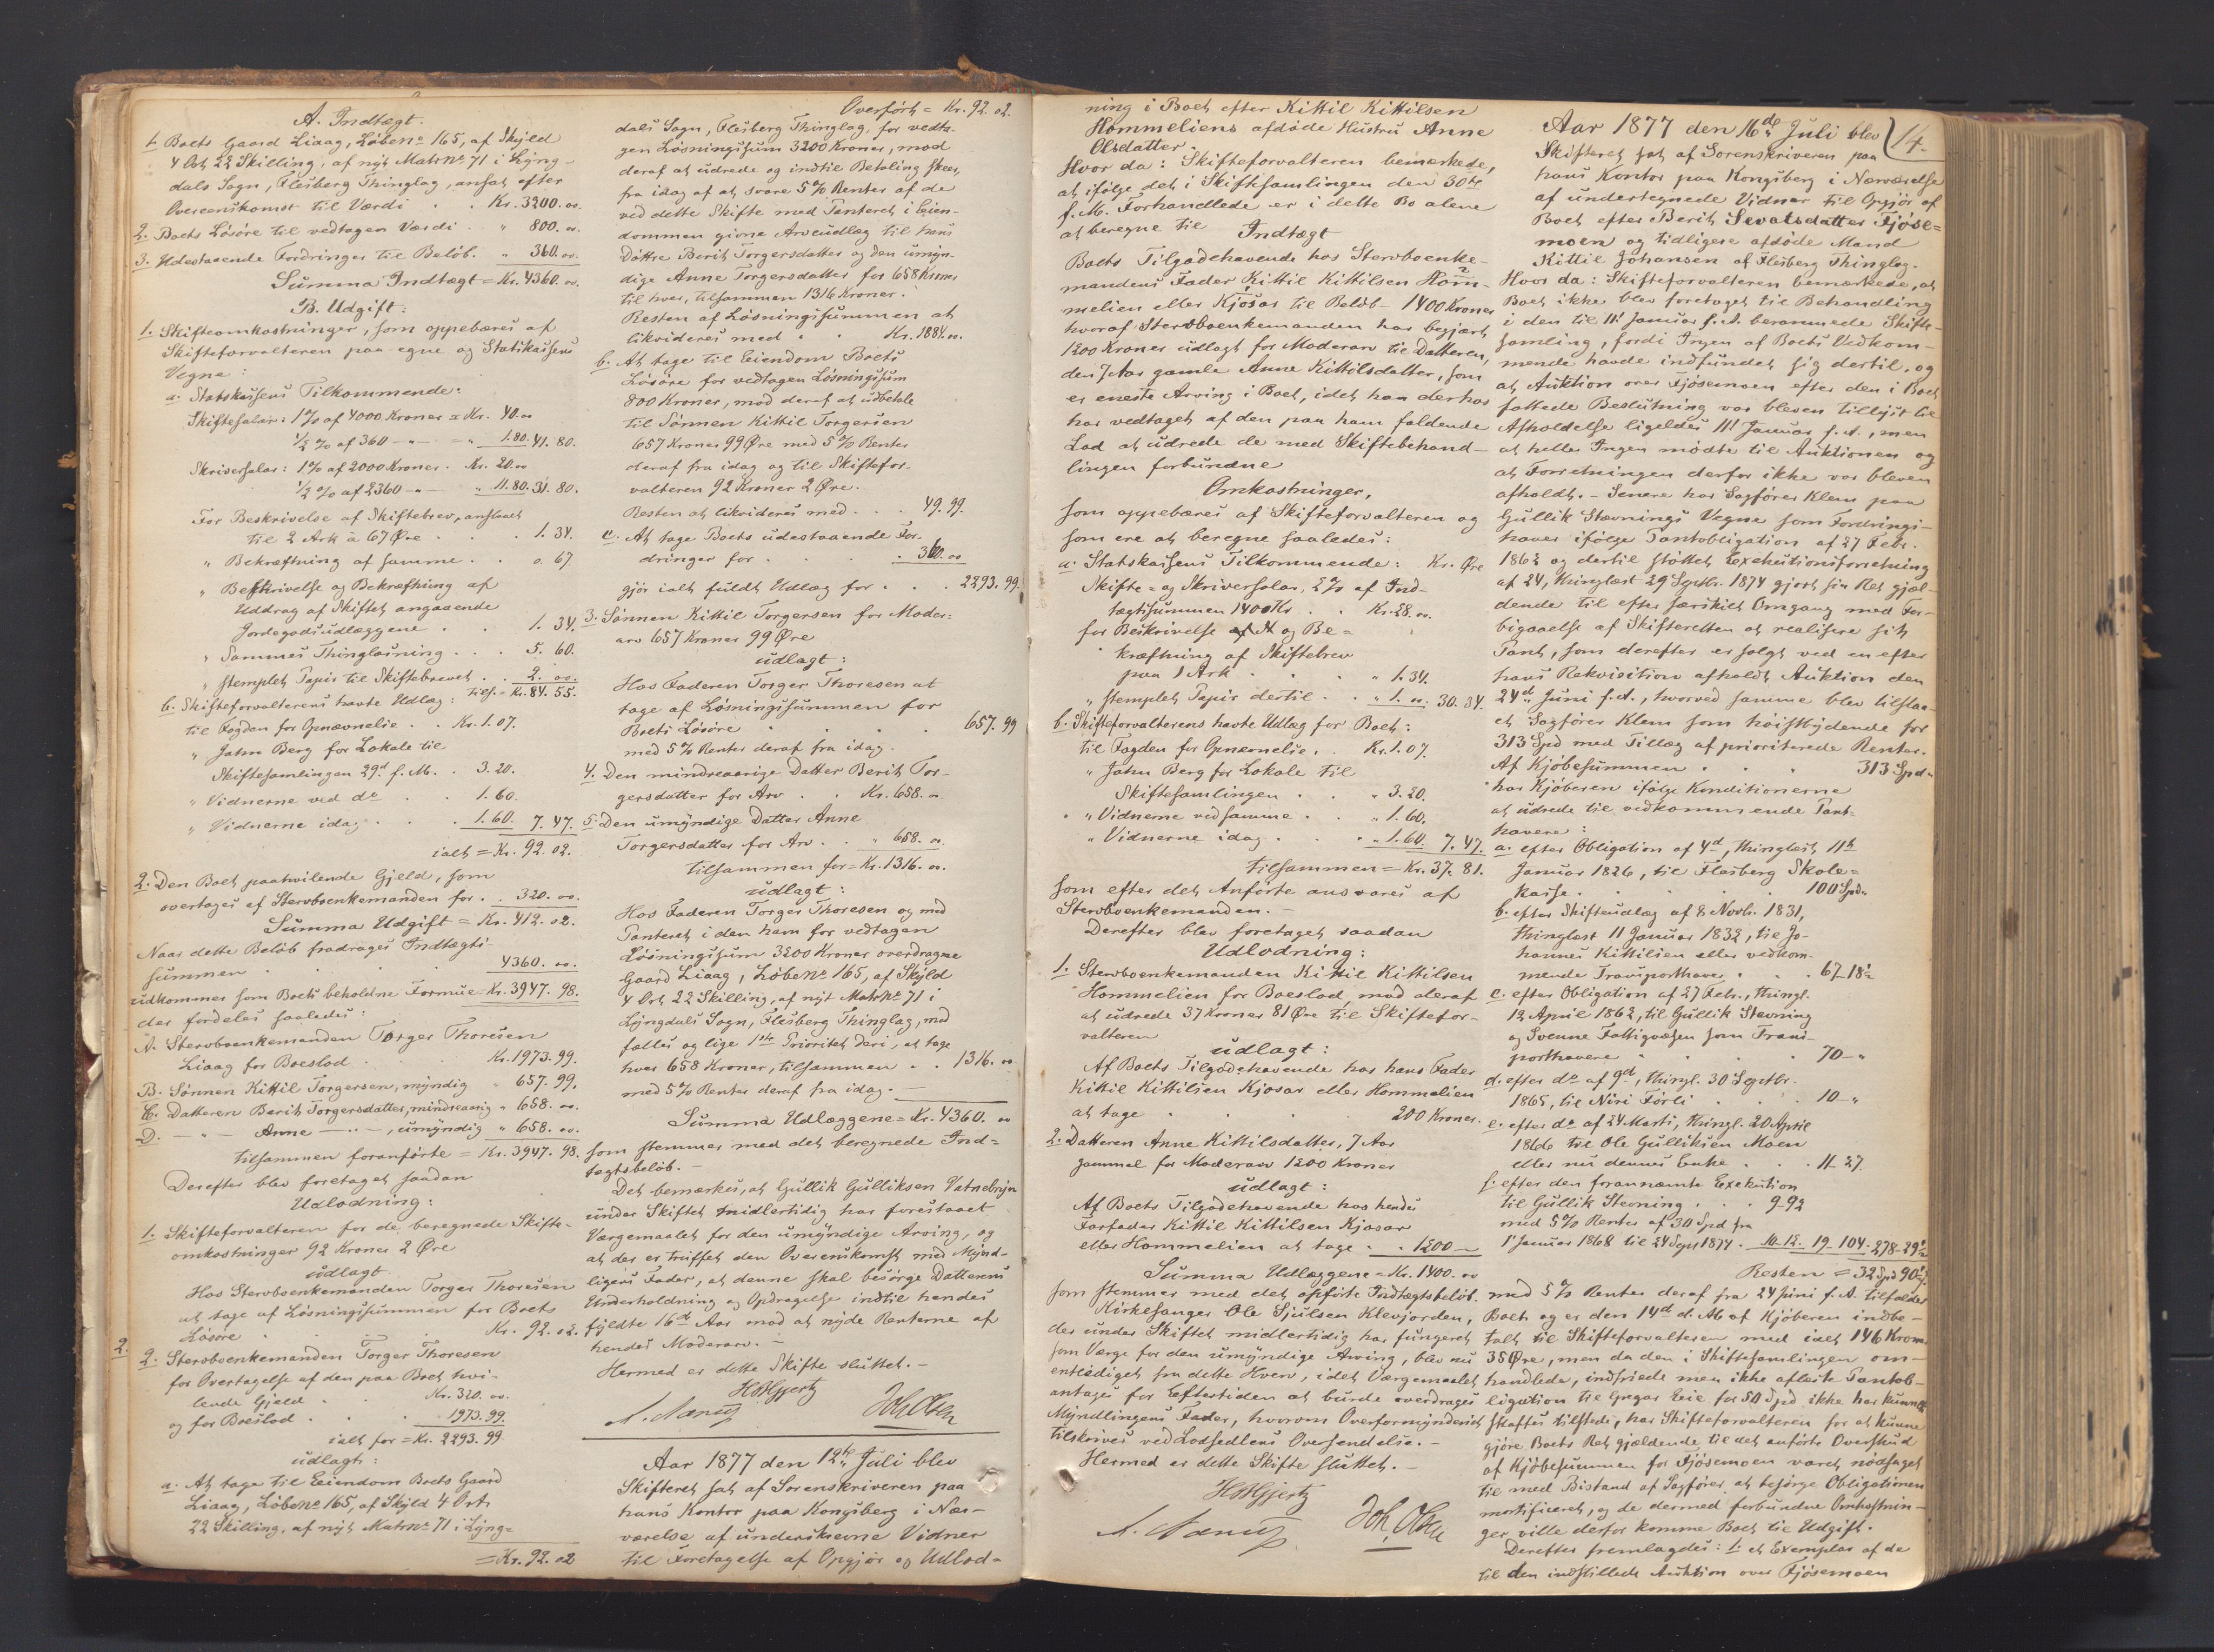 A. Indtægt.
1. Boets Gaard Liaag, Løbeno 165, af Skyld
4 Ort 22 Skilling, af nyt Matr No 71 i Lyng-
dals Sogn, Flesberg Thinglag, ansat efter
Overeenskomst til Værdi . . Kr. 3200. 00
2. Boets Løsøre til vedtagen Værdi . " 800. 00
3. Udestaaende Fordringer til Beløb. " 360. 00.
Summa Indtægt = Kr. 4360. 00
B. Udgift:
1. Skifteomkostninger, som oppebæres af
Skifteforvalteren paa egne og Statskassens
Vegne:
a. Statskassens Tilkommende:
Skiftesalær: 1 % af 4000 Kroner = Kr. 40. 00
½ % af 360 —"— = " 1.80. 41. 80.
Skriversalær: 1 % af 2000 Kroner. Kr. 20. 00
½ % af 2360 —"— " 11.80. 31. 80.
For Beskrivelse af Skiftebrev, anslaaet
til 2 Ark à 67 Øre . . . 1. 34.
" Bekræftning af samme . . 0. 67
" Beskrivelse og Bekræftning af
Uddrag af Skiftet angaaende
Jordegodsudlæggene . . 1. 34.
" Sammes Thinglæsning . . . 5. 60.
" stemplet Papir til Skiftebrevet . . 2. 00.
tils. = Kr. 84. 55.
b. Skifteforvalterens havte Udlæg:
til Fogden for Opnævnelse . . Kr. 1. 07.
" John Berg for Lokale til
Skiftesamlingen 29d f. M. . 3. 20.
" Vidnerne ved do . . 1. 60.
" Vidnerne idag . . . 1. 60. 7. 47.
ialt = Kr. 92. 02.
2. Den Boet paahvilende Gjeld, som
overtages af Stervboenkemanden for . . 320. 00.
Summa Udgift = Kr. 412. 02.
Naar dette Beløb fradrages Indtægts-
summen . . . 4360. 00.
udkommer som Boets beholdne Formue = Kr. 3947. 98.
der fordeles saaledes:
A. Stervboenkemanden Torger Thoresen
Liaag for Boeslod . . Kr. 1973. 99.
B. Sønnen Kittil Torgersen, myndig " 657. 99.
C. Datteren Berit Torgersdatter, mindreaarig " 658. 00.
D. —"— Anne —"—, umyndig " 658. 00.
tilsammen foranførte = Kr. 3947. 98.
Derefter blev foretaget saadan
Udlodning:
1. Skifteforvalteren for de beregnede Skifte-
omkostninger 92 Kroner 2 Øre
udlagt
Hos Stervboenkemanden Torger Thoresen
at tage af Løsningssummen for Boets
Løsøre . . Kr. 92. 02.
2. 2. Stervboenkemanden Torger Thoresen
for Overtagelse af den paa Boet hvi-
lende Gjeld . . Kr. 320. 00.
og for Boeslod . . . 1973. 99.
ialt for = Kr. 2293. 99
udlagt:
a. At tage til Eiendom Boets Gaard
Liaag, Løbeno 165, af Skyld 4 Ort
22 Skilling, af nyt Matr No 71 i Lyng-
= Kr. 92. 02
Overført = Kr. 92. 02.
dals Sogn, Flesberg Thinglag, for vedta-
gen Løsningssum 3200 Kroner, mod
deraf at udrede og indtil Betaling skeer,
fra idag af at svare 5 % Renter af de
ved dette Skifte med Panteret i Eien-
dommen givne Arveudlæg til hans
Døttre Berit Torgersdatter og den umyn-
dige Anne Torgersdatter for 658 Kroner
til hver, tilsammen 1316 Kroner.
Resten af Løsningssummen at
likvideres med . . Kr. 1884. 00.
b. At tage til Eiendom Boets
Løsøre for vedtagen Løsningssum
800 Kroner, mod deraf at udbetale
til Sønnen Kittil Torgersen
657 Kroner 99 Øre med 5 % Renter
deraf fra idag og til Skiftefor-
valteren 92 Kroner 2 Øre.
Resten at likvideres med . . . 49. 99.
c. At tage Boets udestaaende For-
dringer for . . . . 360. 00
gjør ialt fuldt Udlæg for . . . 2293. 99.
3. Sønnen Kittil Torgersen for Moder-
arv 657 Kroner 99 Øre
udlagt:
Hos Faderen Torger Thoresen at
tage af Løsningssummen for
Boets Løsøre . . . . 657. 99
med 5 % Renter deraf fra idag.
4. Den mindreaarige Datter Berit Tor-
gersdatter for Arv . . Kr. 658. 00
5. Den umyndige Datter Anne
Torgersdatter for Arv . . " 658. 00.
tilsammen for = Kr. 1316. 00.
udlagt:
Hos Faderen Torger Thoresen og med
Panteret i den ham for vedtagen
Løsningssum 3200 Kroner overdragne
Gaard Liaag, Løbeno 165, af Skyld
4 Ort, 22 Skilling, af nyt Matr No 71 i
Lyngdals Sogn, Flesberg Thinglag, med
fælles og lige 1ste Prioritet deri, at tage
hver 658 Kroner, tilsammen . . 1316. 00
med 5 % Renter deraf fra idag. —
Summa Udlæggene = Kr. 4360. 00
som stemmer med det beregnede Ind-
tægtsbeløb. —
Det bemærkes, at Gullik Gulliksen Vatnebryn
under Skiftet midlertidig har forestaaet
Værgemaalet for den umyndige Arving, og
at der er truffet den Overenskomst med Mynd-
ligens Fader, at denne skal besørge Datterens
Underholdning og Opdragelse indtil hendes
fyldte 16d Aar mod at nyde Renterne af
hendes Moderarv. —
Hermed er dette Skifte sluttet. —
Joh Olsen
Aar 1877 den 12te Juli blev
Skifteret sat af Sorenskriveren paa
hans Kontor paa Kongsberg i Nær-
værelse af underskrevne Vidner
til Foretagelse af Opgjør og Udlod-
ning i Boet efter Kittil Kittilsen
Hommeliens afdøde Hustru Anne
Olsdatter.
Hvor da: Skifteforvalteren bemærkede,
at ifølge det i Skiftesamlingen den 30te
f. M. Forhandlede er i dette Bo alene
at beregne til Indtægt
Boets Tilgodehavende hos Stervboenke-
mandens Fader Kittil Kittilsen Hom-
melien eller Kjøsar til Beløb — 1400 Kroner
hvoraf Stervboenkemanden har begjært
1200 Kroner udlagt for Moderarv til Datteren,
den 7 Aar gamle Anne Kittilsdatter, som
er eneste Arving i Boet, idet han derhos
har vedtaget af den paa ham faldende
Lod at udrede de med Skiftebehand-
lingen forbundne
Omkostninger,
som oppebæres af Skifteforvalteren og
som ere at beregne saaledes:
a. Statskassens Tilkommende: Kr. Øre
Skifte- og Skriversalær, 2 % af Ind-
tægtssummen 1400 Kr . . Kr. 28. 00.
for Beskrivelse og Be-
kræftning af Skiftebrev
paa 1 Ark . . . " 1. 34.
" stemplet Papir dertil . . " 1. 00. 30. 34.
b. Skifteforvalterens havte Udlæg for Boet:
til Fogden for Opnævnelse . . Kr. 1. 07.
" John Berg for Lokale til
Skiftesamlingen . . " 3. 20.
" Vidnerne ved samme . . " 1. 60.
" Vidnerne idag . . . " 1. 60. 7. 47.
tilsammen = Kr. 37. 81.
som efter det Anførte ansvares af
Stervboenkemanden. —
Derefter blev foretaget saadan
Udlodning:
1. Stervboenkemanden Kittil Kittilsen
Hommelien for Boeslod, mod deraf
at udrede 37 Kroner 81 Øre til Skiftefor-
valteren
udlagt:
Af Boets Tilgodehavende hos hans Fader
Kittil Kittilsen Kjøsar eller Hommelien
at tage . . . . 200 Kroner.
2. Datteren Anne Kittilsdatter, 7 Aar
gammel for Moderarv 1200 Kroner
udlagt:
Af Boets Tilgodehavende hos hendes
Farfader Kittil Kittilsen Kjøsar
eller Hommelien at tage . . 1200 —
Summa Udlæggene = Kr. 1400. 00
som stemmer med det opførte Indtægtsbeløb.
Kirkesanger Ole Sjulsen Klevjorden,
der under Skiftet midlertidig har fungeret
som Værge for den umyndige Arving, blev nu
entlediget fra dette Hverv, idet Værgemaalet
antages for Eftertiden at burde overdrages
Myndlingens Fader, hvorom Overformynderiet
tilskrives ved Lodsedlens Oversendelse. —
Hermed er dette Skifte sluttet. —
Joh Olsen
14.
Aar 1877 den 16de Juli blev
Skifteret sat af Sorenskriveren paa
hans Kontor paa Kongsberg i Nærværelse
af undertegnede Vidner til Opgjør af
Boet efter Berit Sevatsdatter Fjøse-
moen og tidligere afdøde Mand
Kittil Johansen af Flesberg Thinglag.
Hvor da: Skifteforvalteren bemærkede, at
Boet ikke blev foretaget til Behandling
i den til 11' Januar f. A. berammede Skifte-
samling, fordi Ingen af Boets Vedkom-
mende havde indfundet sig dertil, og
at Auktion over Fjøsemoen efter den i Boet
fattede Beslutning var bleven tillyst til
Afholdelse ligeledes 11' Januar f. A., men
at heller Ingen mødte til Auktionen og
at Forretningen derfor ikke var bleven
afholdt. — Senere har Sagfører Klem paa
Gullik Stævnings Vegne som Fordrings-
haver ifølge Pantobligation af 27 Febr.
1862 og dertil støttet Exekutionsforretning
af 24, thinglæst 29 Septbr. 1874 gjort sin Ret gjæl-
dende til efter særskilt Omgang med For-
bigaaelse af Skifteretten at realisere sit
Pant, som derefter er solgt ved en efter
hans Rekvisition afholdt Auktion den
24de Juni f. A., hvorved samme blev tilslaa-
et Sagfører Klem som høistbydende for
313 Spd med Tillæg af prioriterede Renter.
Af Kjøbesummen . . . 313 Spd "
har Kjøberen ifølge Konditionerne
at udrede til vedkommende Pant-
havere:
a. efter Obligation af 4d, thinglæst 11te
Januar 1826, til Flesberg Skole-
kasse . . . . . 100 Spd "
b. efter Skifteudlæg af 8 Novb. 1831,
thinglæst 11 Januar 1832, til Jo-
hannes Kittilsen eller vedkom-
mende Transporthaver . . . 67-18½
c. efter Obligation af 27 Febr., thingl.
12 April 1862, til Gullik Stevning
og Svenne Fattigvæsen som Trans-
porthavere . . . . 70 - "
d. efter do af 9d, thingl. 30 Septbr.
1865, til Niri Førli . . . 10 - "
e. efter do af 24 Marts, thingl. 20 April
1866 til Ole Gulliksen Moen
eller nu dennes Enke . . . 11 - 27.
f. efter den forannævnte Exekution
til Gullik Stevning . . . 9-92
med 5 % Renter af 30 Spd fra
1' Januar 1868 til 24 Sept 1874 . 10-12. 19-104. 278-29½
Resten = 32 Spd 90½
med 5 % Renter deraf fra 24 Juni f. A. tilfalder
Boet og er den 14d d. M. af Kjøberen indbe-
talt til Skifteforvalteren med ialt 146 Kroner
35 Øre, men da den i Skiftesamlingen om-
handlede, indfriede men ikke aflæste Pantob-
ligation til Gregar Eeie for 50 Spd ikke har kunnet
skaffes tilstede, har Skifteforvalteren for at kunne
gjøre Boets Ret gjældende til det anførte Overskud
af Kjøbesummen for Fjøsemoen været nødsaget
til med Bistand af Sagfører at besørge Obligationen
mortificeret, og de dermed forbundne Omkostnin-
ger ville derfor komme Boet til Udgift.
Derefter fremlagdes: 1. et Exemplar af de
til den indstillede Auktion over Fjøsemoen